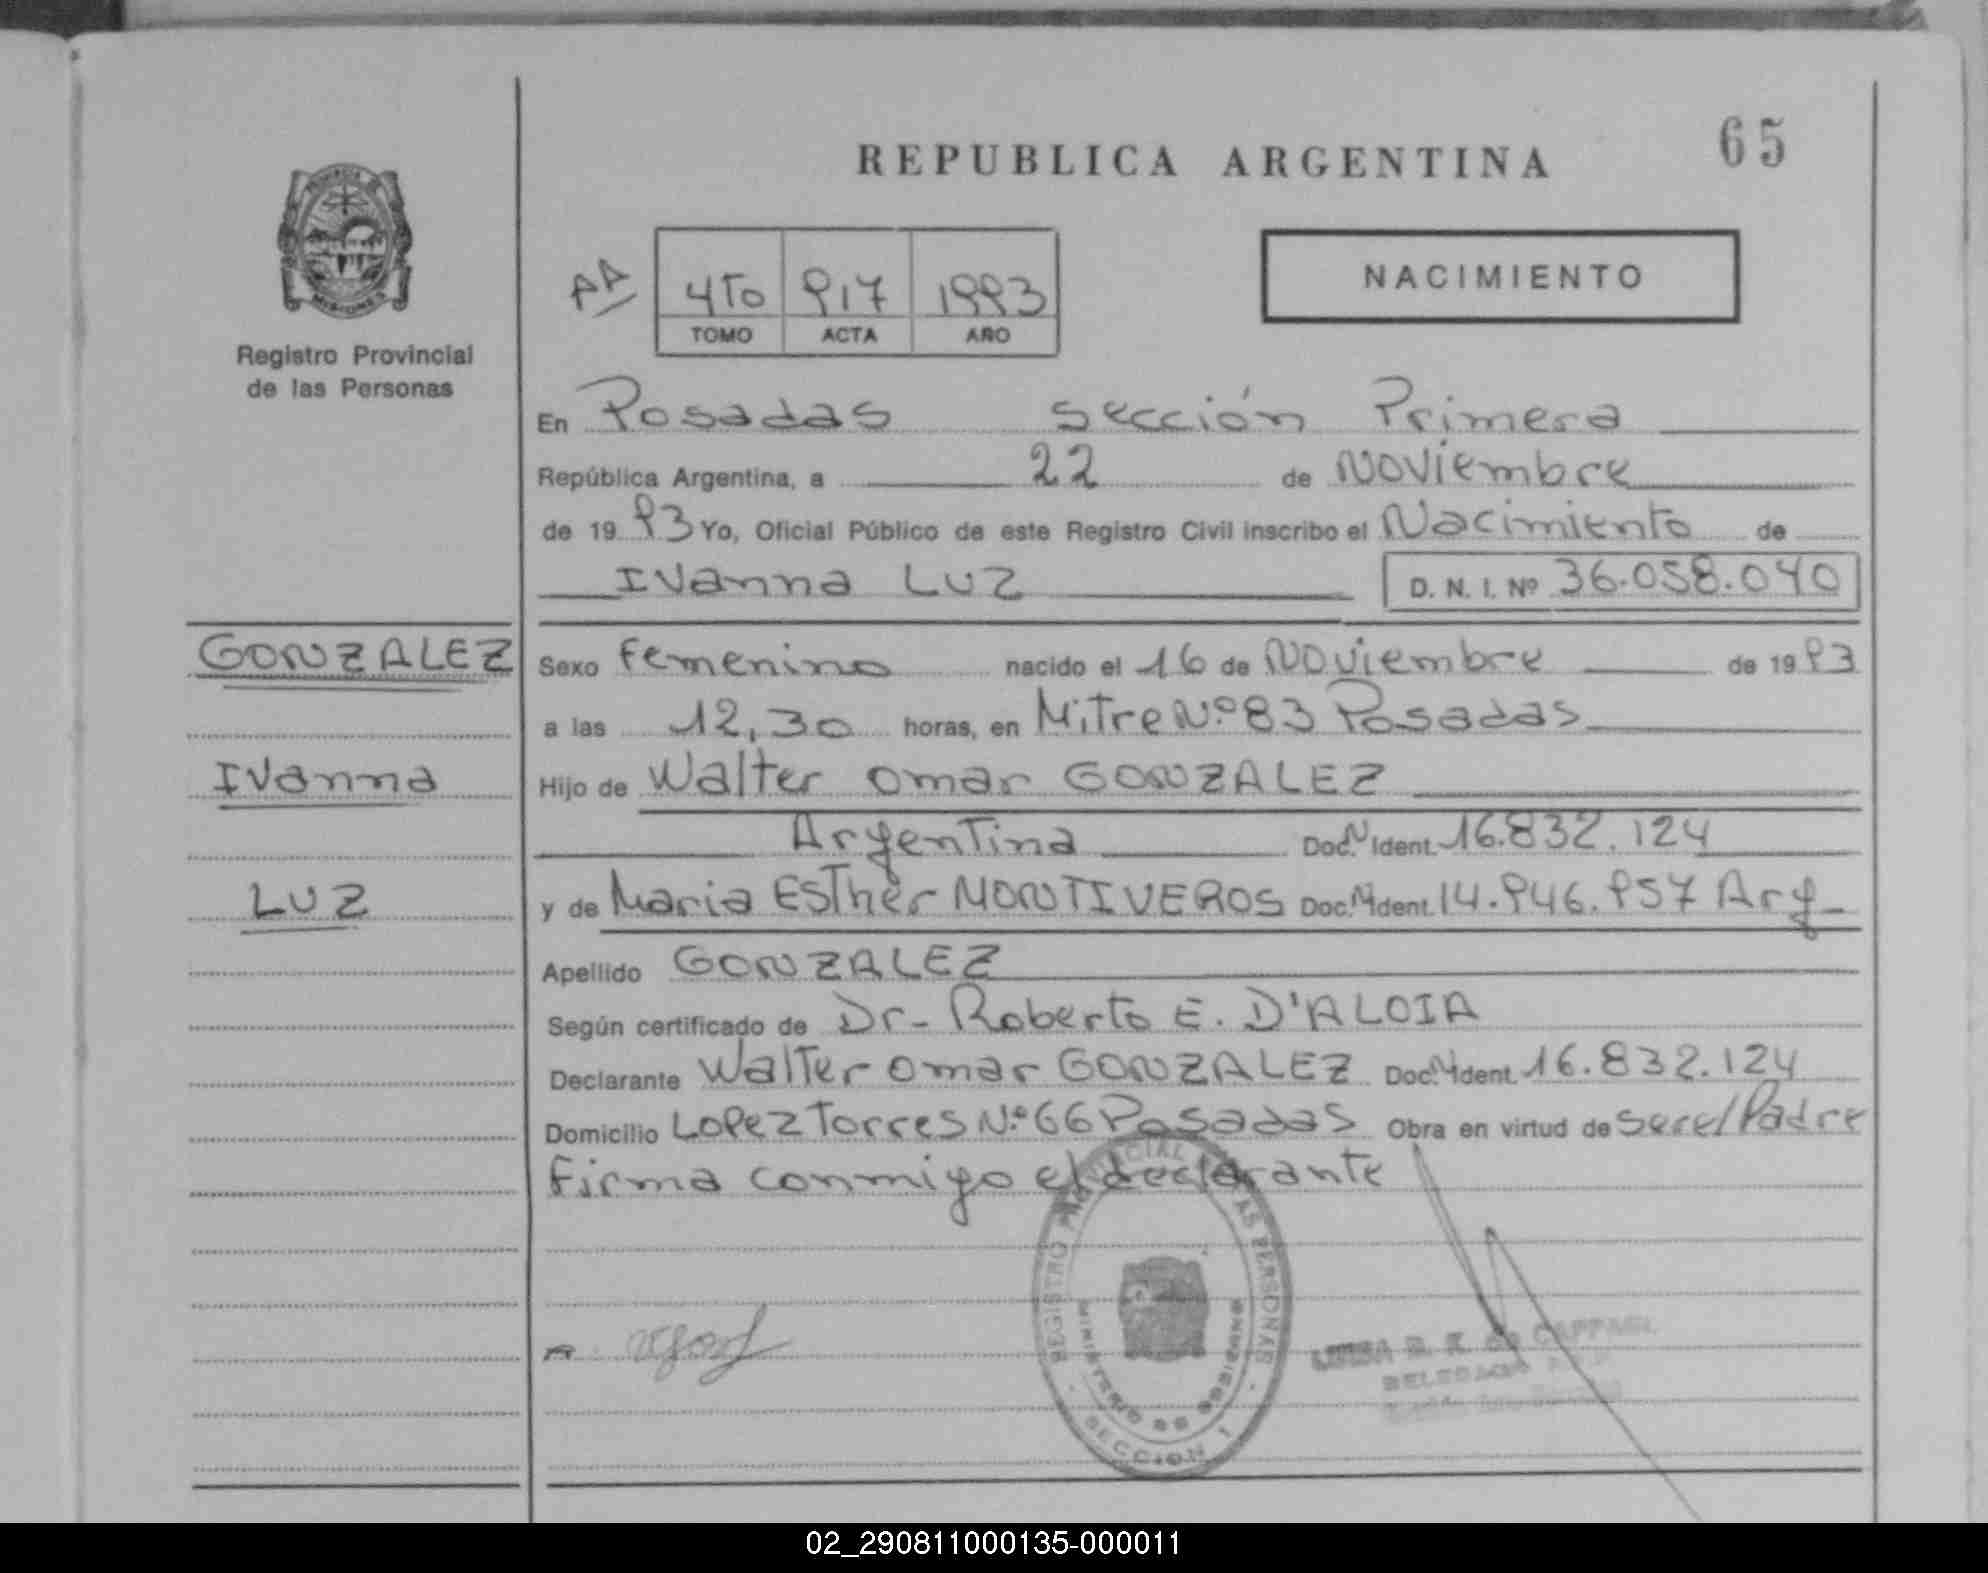 REPUBLICA ARGENTINA
65
PROVINCIA DE
MISIONES
Registro Provincial
de las Personas
AA
4To 917 1993
TOMO ACTA AÑO
NACIMIENTO
En Posadas sección Primera
República Argentina, a 22 de Noviembre
de 1993 Yo, Oficial Público de este Registro Civil inscribo el Nacimiento de
Ivanna Luz D. N. I. Nº 36.058.040
GONZALEZ
Ivanna
Luz
Sexo Femenino nacido el 16 de Noviembre de 1993
a las 12,30 horas, en Mitre Nº 83 Posadas
Hijo de Walter Omar GONZALEZ
Argentina Doc. N Ident. 16.832.124
y de Maria Esther MONTIVEROS Doc. N Ident. 14.946.957 Arg
Apellido GONZALEZ
Según certificado de Dr. Roberto E. D'ALOIA
Declarante Walter Omar GONZALEZ Doc. N Ident. 16.832.124
Domicilio Lopez Torres Nº 66 Posadas Obra en virtud de ser el Padre
Firma conmigo el declarante
REGISTRO PROVINCIAL DE LAS PERSONAS
MINISTERIO DE GOBIERNO
SECCION 1
02_290811000135-000011